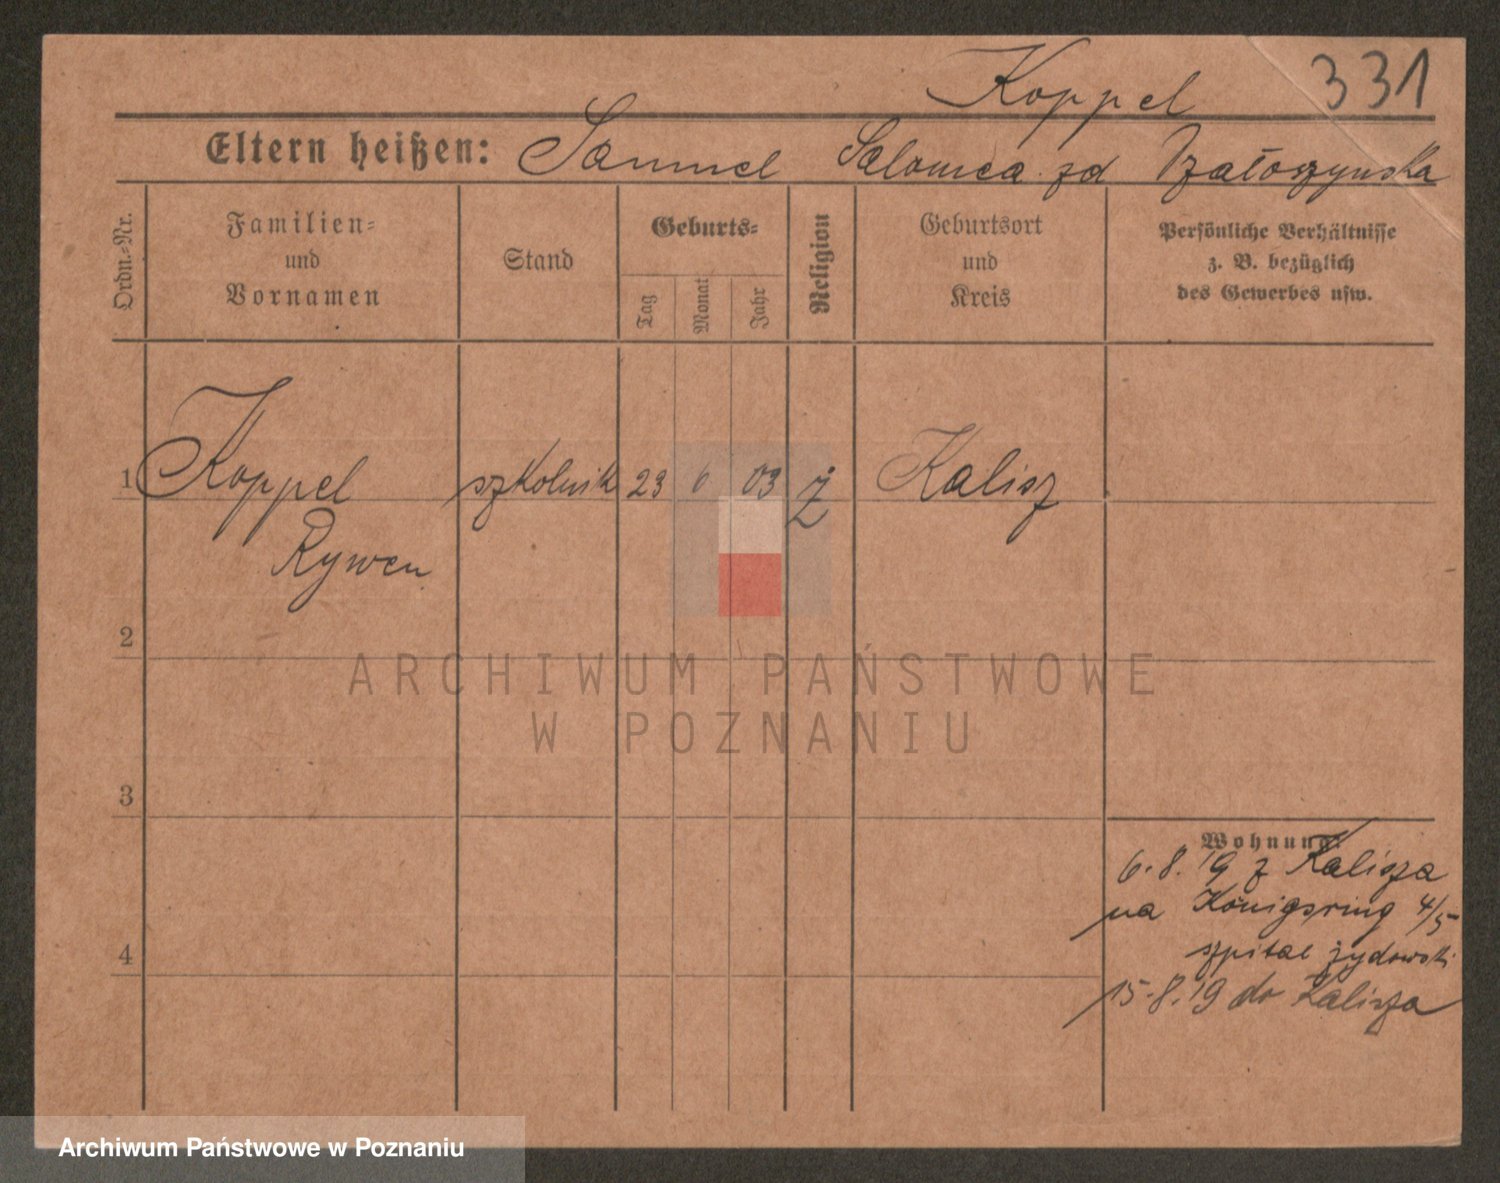 Koppel 331
Eltern heißen: Samuel Salomea zd
Ordn.-Nr.
Familien-
und
Vornamen
Stand
Geburts-
Tag
Monat
Jahr
Religion
Geburtsort
und
Kreis
Persönliche Verhältnisse
z. B. bezüglich
des Gewerbes usw.
1 Koppel szkolnik 23 6 03 ż Kalisz
Rywen
2
3
4
Wohnung:
6.8.19 z Kalisza
na Königsring 4/5
szpital żydowski
15.8.19 do Kalisza
ARCHIWUM PAŃSTWOWE
W POZNANIU
Archiwum Państwowe w Poznaniu